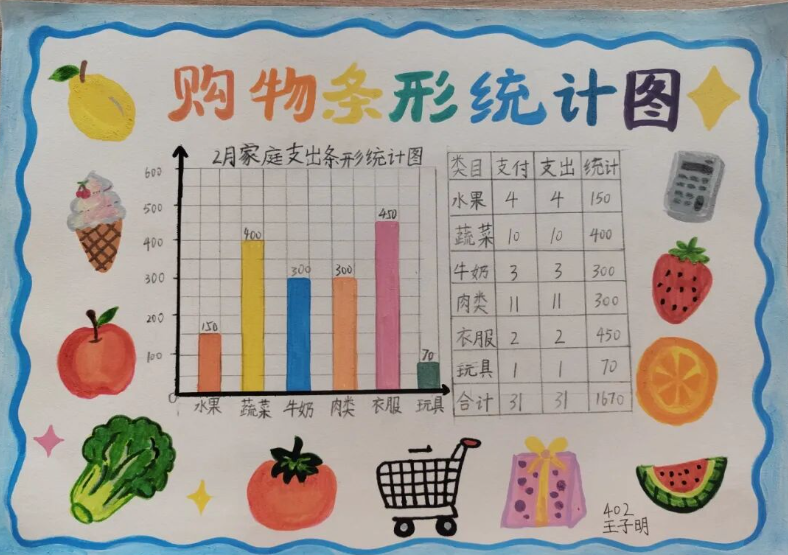 购物条形统计图
2月家庭支出条形统计图
600
500
400
300
200
100
0
150
400
300
300
450
70
水果 蔬菜 牛奶 肉类 衣服 玩具
类目 支付 支出 统计
水果 4 4 150
蔬菜 10 10 400
牛奶 3 3 300
肉类 11 11 300
衣服 2 2 450
玩具 1 1 70
合计 31 31 1670
402
王子明